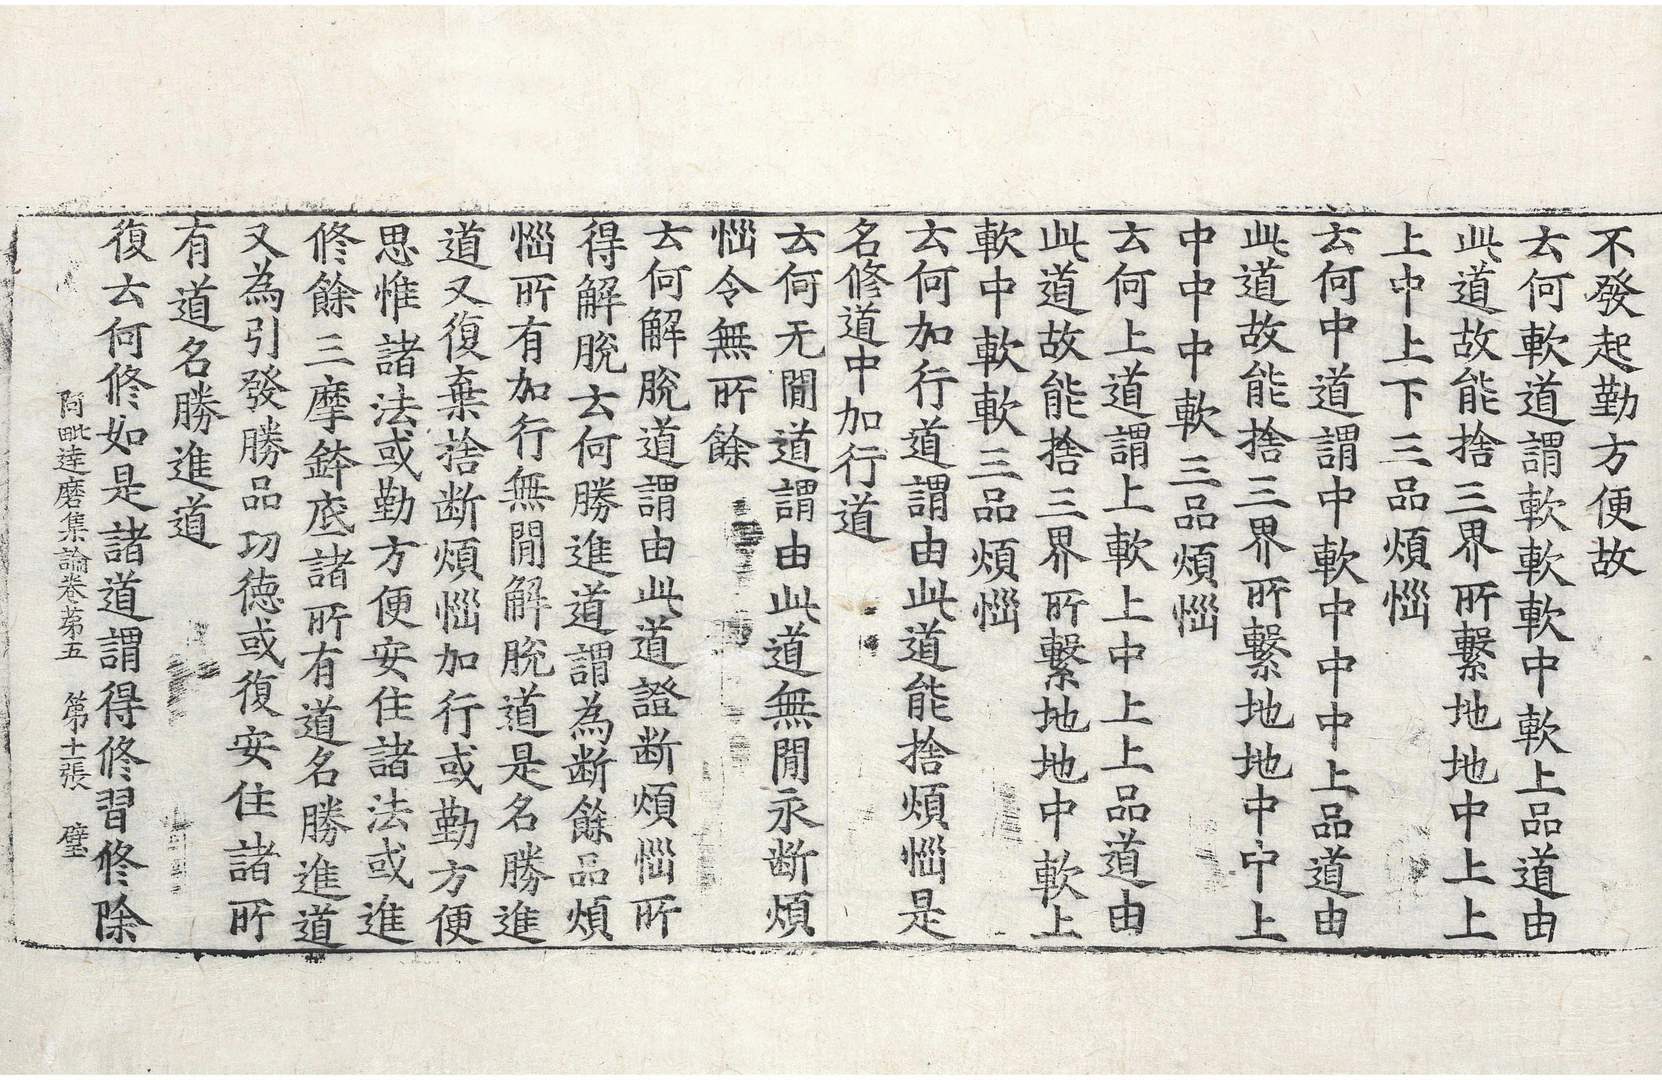 不發起勤方便故
云何軟道謂軟軟軟中軟上品道由
此道故能捨三界所繫地地中上上
上中上下三品煩惱
云何中道謂中軟中中中上品道由
此道故能捨三界所繫地地中中上
中中中軟三品煩惱
云何上道謂上軟上中上上品道由
此道故能捨三界所繫地地中軟上
軟中軟軟三品煩惱
云何加行道謂由此道能捨煩惱是
名修道中加行道
云何无閒道謂由此道無閒永断煩
惱令無所餘
云何解脫道謂由此道證断煩惱所
得解脫云何勝進道謂為断餘品煩
惱所有加行無閒解脫道是名勝進
道又復棄捨断煩惱加行或勤方便
思惟諸法或勤方便安住諸法或進
修餘三摩鉢底諸所有道名勝進道
又為引發勝品功德或復安住諸所
有道名勝進道
復云何修如是諸道謂得修習修除
阿毗達磨集論卷第五　第十一張　璧